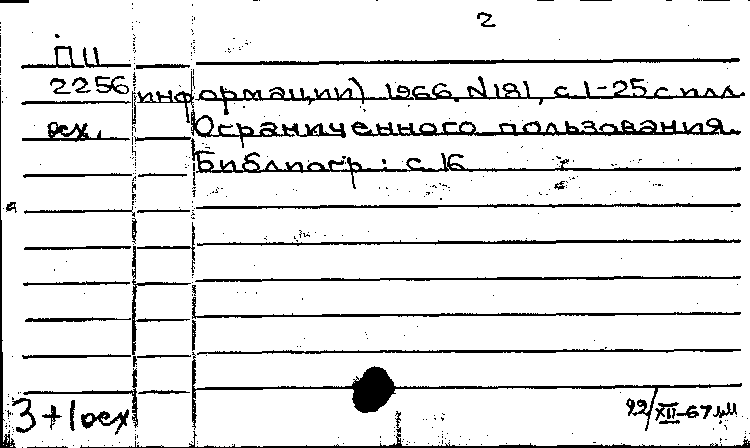 2
ПII
2256 информации) 1966, N 181, с. 1-25 с илл.
осх. Ограниченного пользования.
Библиогр: с. 16
3+1 осх
22/XII-67